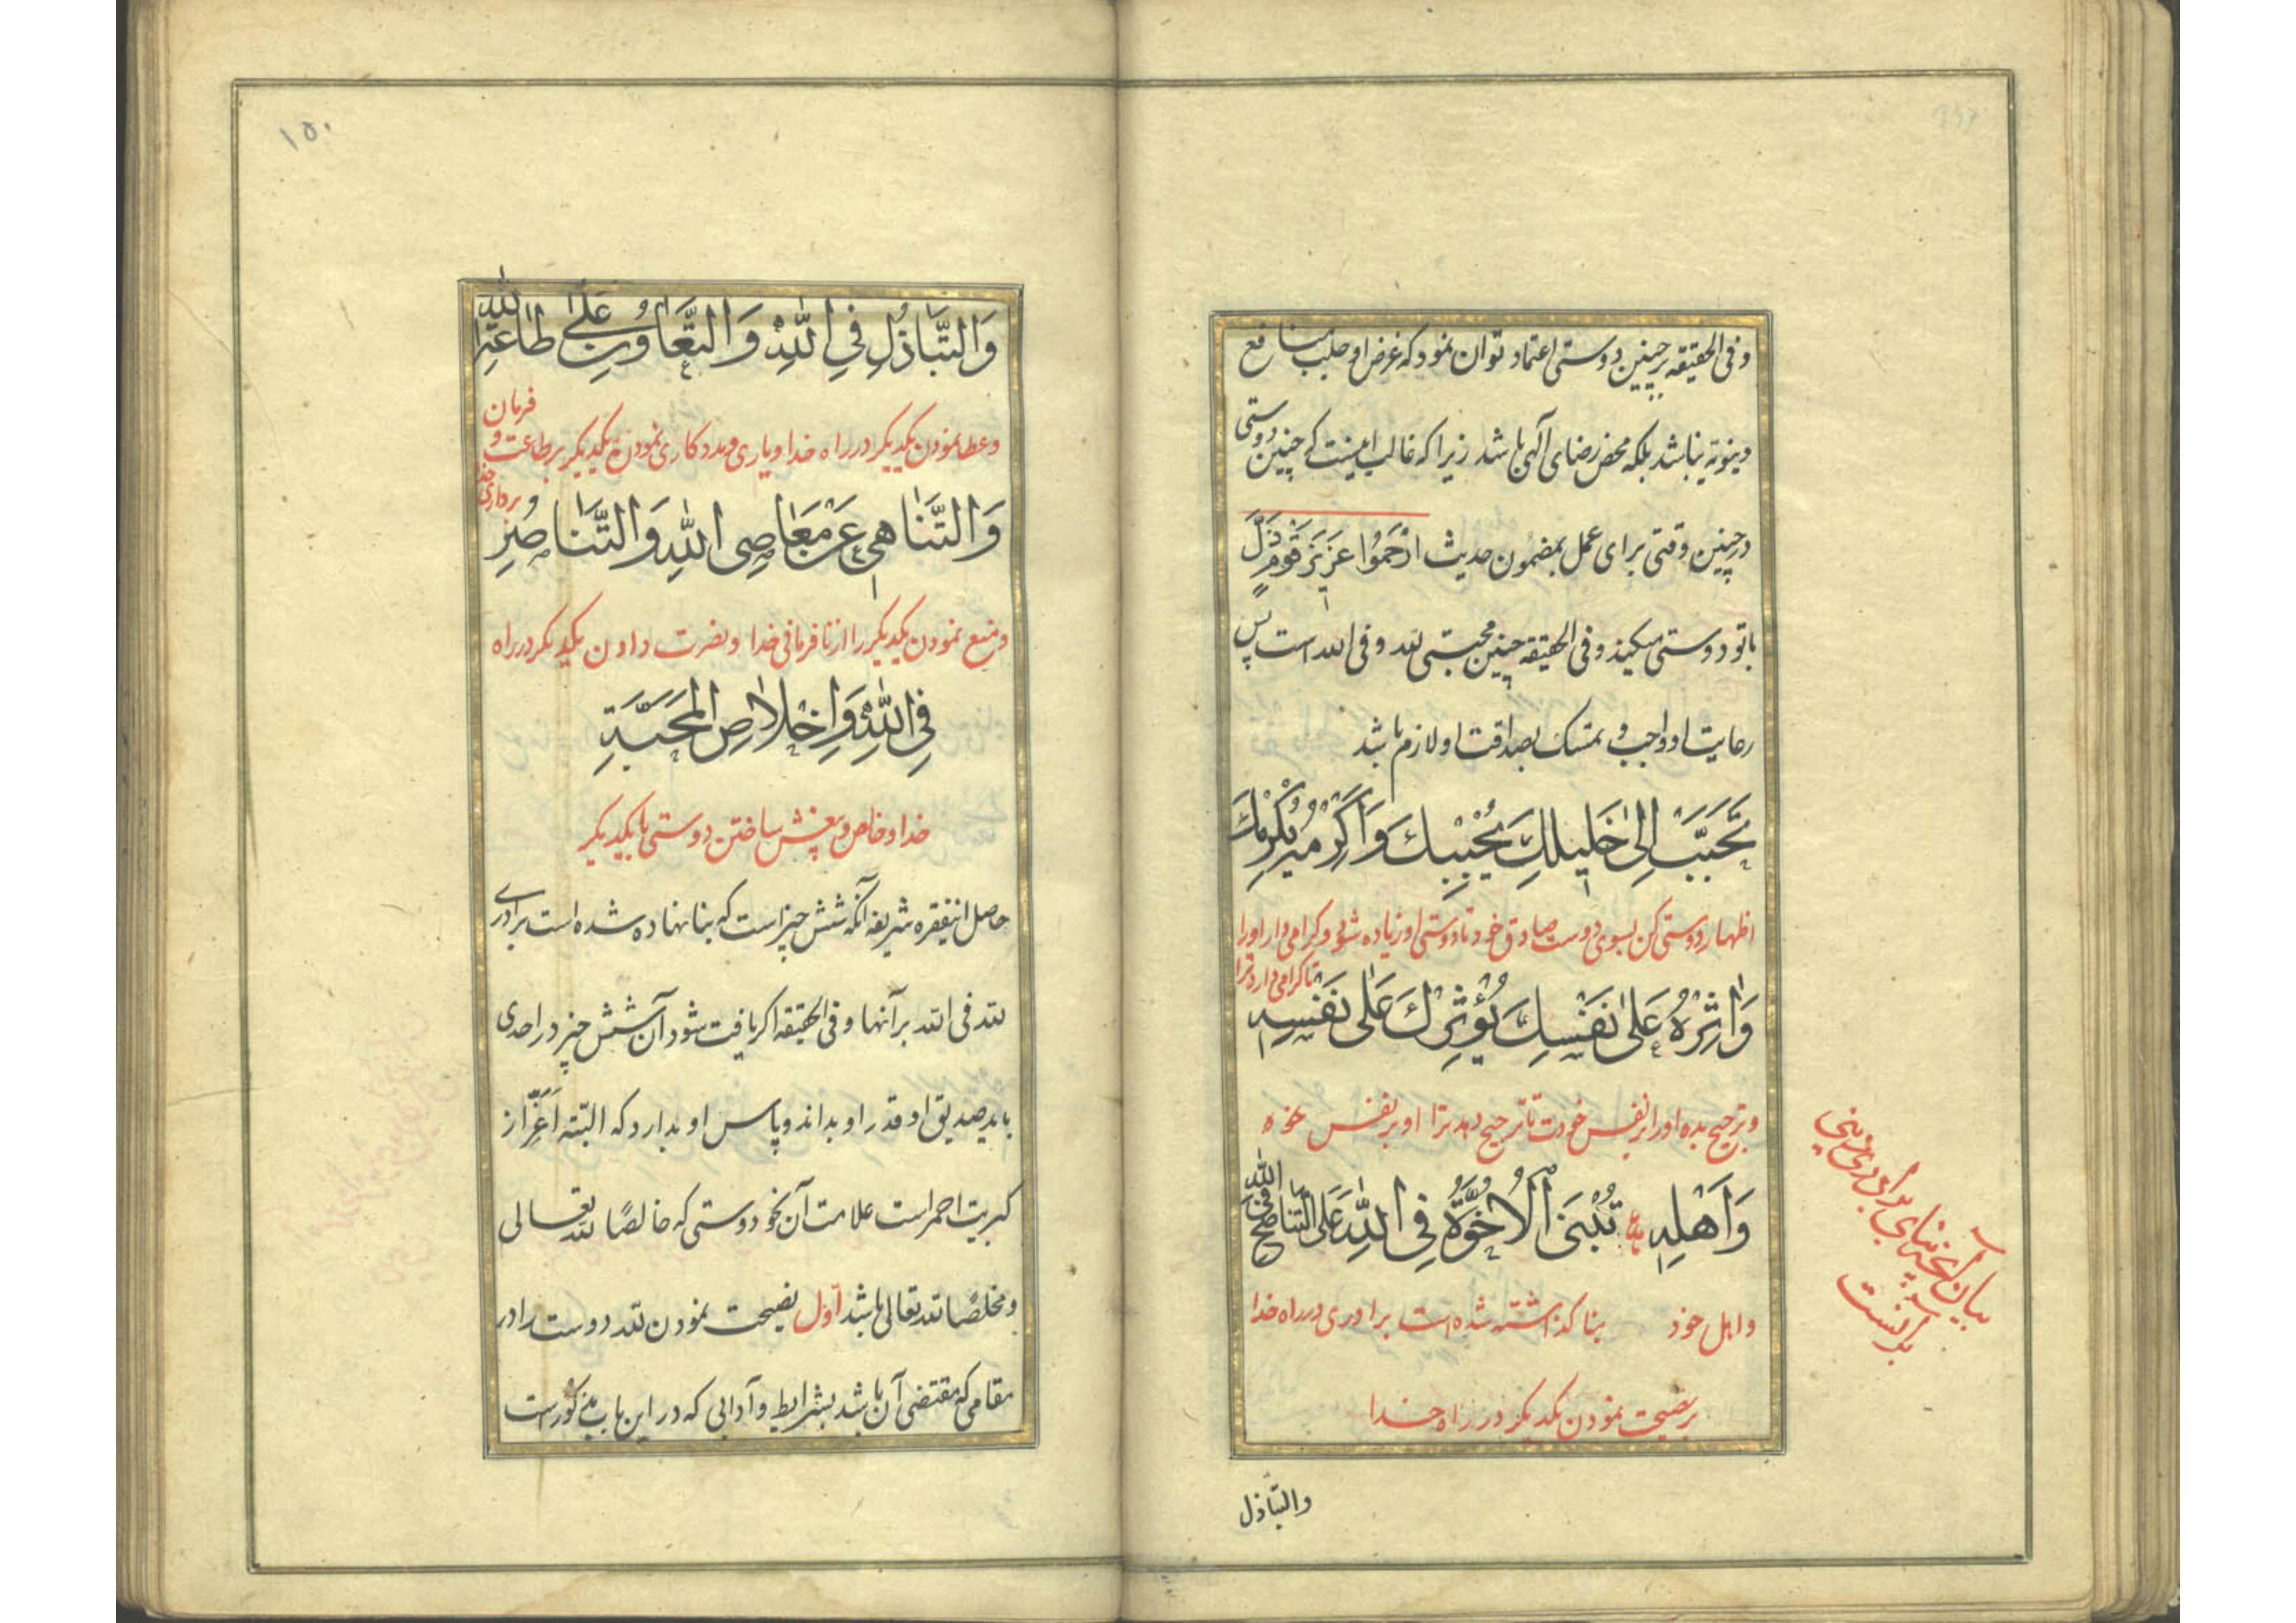 وفی الحقیقه بر چنین دوستی اعتماد توان نمود که غرض او جلب منافع
دینویه نباشد بلکه محض رضای آلهی باشد زیرا که غالب اینست که چنین دوستی
در چنین وقتی برای عمل بمضمون حدیث ارْحَمُوا عَزیزَ قَوْمٍ ذَلَّ
باتو دوستی میکند وفی الحقیقه چنین محبتی لله وفی الله است پس
رعایت او واجب و تمسک بصداقت او لازم باشد
تَحَبَّبْ اِلیٰ خَلیلِكَ یُحْبِبْكَ وَاَکْرِمْهُ یُکْرِمْكَ
اظهار دوستی کن بسوی دوست صادق خود تا دوستی او زیاده شود و کرامی دار اورا
تا کرامی دارد ترا
وَاٰثِرْهُ عَلیٰ نَفْسِكَ یُؤْثِرْكَ عَلیٰ نَفْسِهِ
و ترجیح بده اورا بر نفس خودت تا ترجیح دهد ترا او بر نفس خود
وَاَهْلِهِ ع تُبْنَی الْاُخُوَّةُ فِی اللّٰهِ عَلَی التَّنَاصُحِ فِی اللّٰهِ
و اهل خود بنا کذاشته شده است برادری در راه خدا
بر نصیحت نمودن یکدیکر در راه خدا
بیان آنچه بنای برادری دینی
بر آنست
والتّباذل
۱۵۰
وَالتَّبَاذُلِ فِی اللّٰهِ وَالتَّعَاوُنِ عَلیٰ طَاعَةِ اللّٰهِ
و عطا نمودن یکدیکر در راه خدا و یاری و مددکاری نمودن یکدیکر بر طاعت و فرمان
برداری خدا
وَالتَّنَاهِی عَنْ مَعَاصِی اللّٰهِ وَالتَّنَاصُرِ
و منع نمودن یکدیکر را از نافرمانی خدا و نصرت دادن یکدیکر در راه
فِی اللّٰهِ وَاِخْلَاصِ الْمَحَبَّةِ
خدا و خالص و بیغش ساختن دوستی با یکدیکر
حاصل اینفقره شریفه آنکه شش چیز است که بنا نهاده شده است برادری
لله فی الله بر آنها وفی الحقیقه اکر یافت شود آن شش چیز در احدی
باید صدیق او قدر او بداند و پاس او بدارد که البتّه اَعَزّ از
کبریت احمر است علامت آن نحو دوستی که خالصًا لله تعالی
و مخلصًا لله تعالی باشد اوّل نصیحت نمودن لله دوست را در
مقامی که مقتضی آن باشد بشرایط و آدابی که در این باب مذکور است